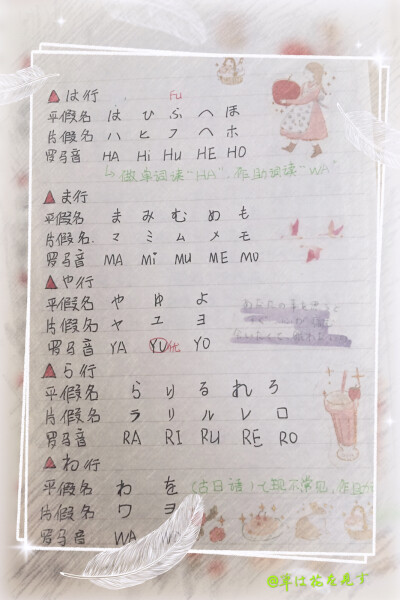 ▲は行
Fu
平假名 は ひ ふ へ ほ
片假名 ハ ヒ フ ヘ ホ
罗马音 HA Hi Hu HE HO
做单词读“HA”,作助词读“WA”
▲ま行
平假名 ま み む め も
片假名. マ ミ ム メ モ
罗马音 MA Mi MU ME MO
▲や行
平假名 や ゆ よ
片假名 ヤ ユ ヨ
罗马音 YA YU YO
▲ら行
平假名 ら り る れ ろ
片假名 ラ リ ル レ ロ
罗马音 RA RI RU RE RO
▲わ行
平假名 わ を (古日语)(现不常见,作助
片假名 ワ ヲ
罗马音 WA